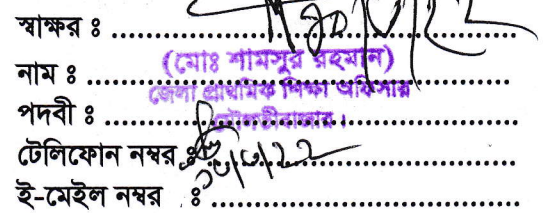 স্বাক্ষর ঃ
নাম ঃ (মোঃ শামসুর রহমান)
জেলা প্রাথমিক শিক্ষা অফিসার
পদবী ঃ মৌলভীবাজার।
টেলিফোন নম্বর ঃ
ই-মেইল নম্বর ঃ